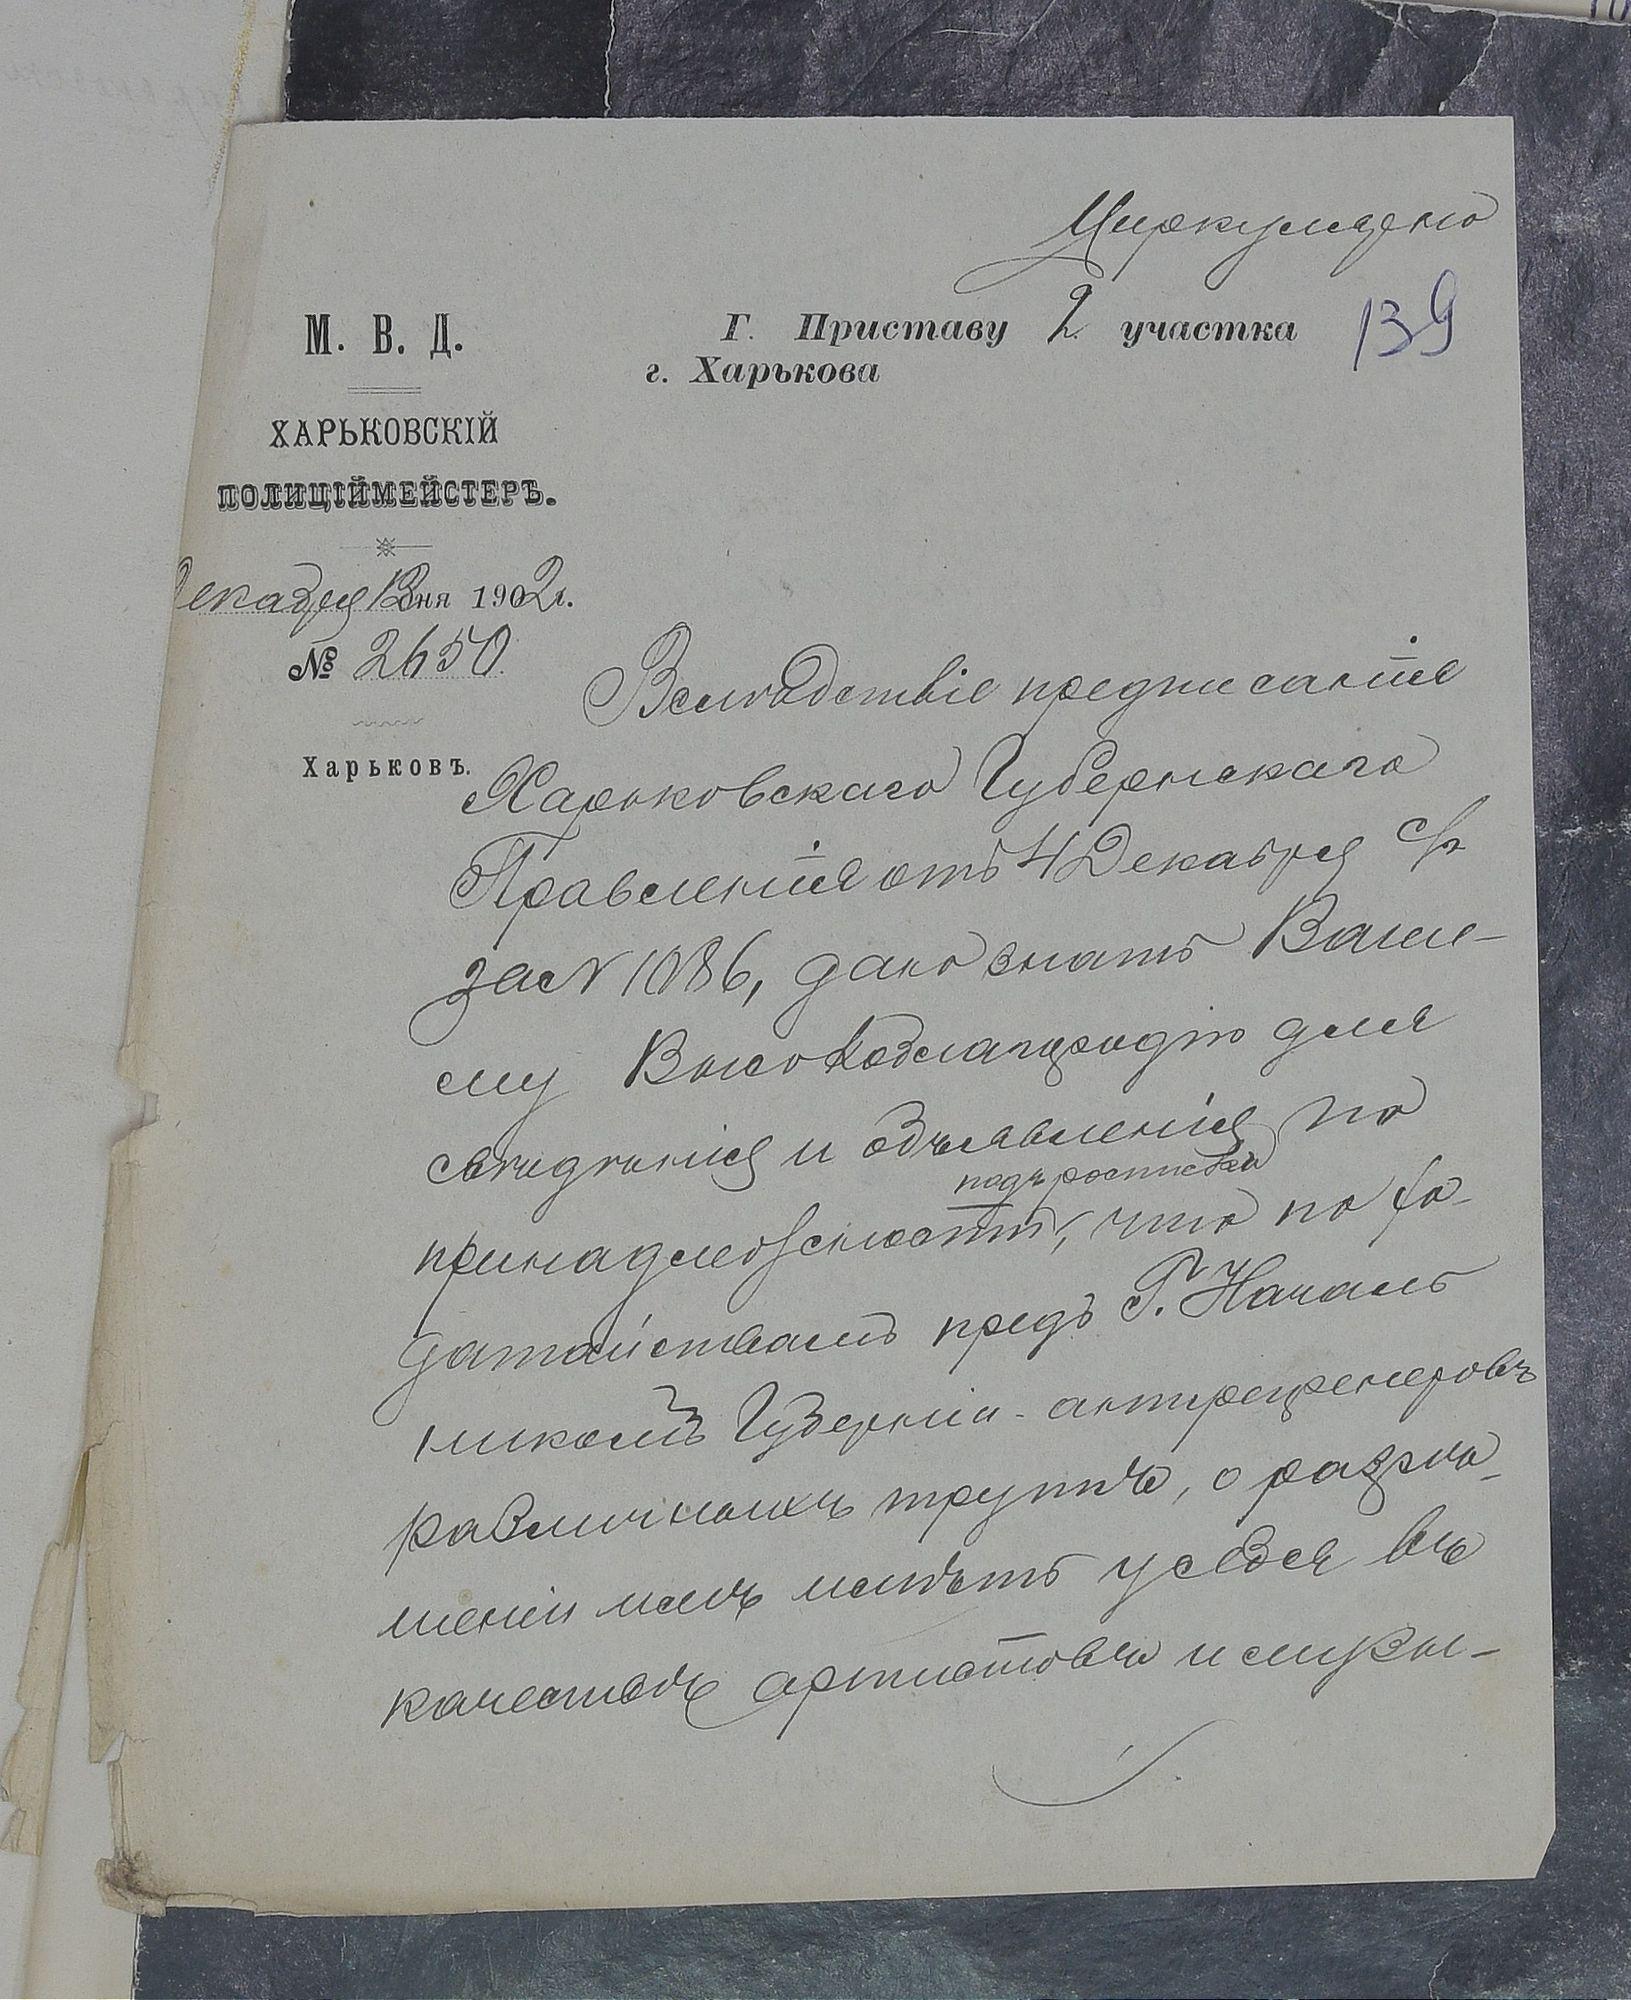 Циркулярно
139
М. В. Д.
ХАРЬКОВСКІЙ
ПОЛИЦІЙМЕЙСТЕРЪ.
Декабря 13 дня 1902 г.
№ 2650.
Харьковъ.
Г. Приставу 2 участка
г. Харькова
Вслѣдствіе предписанія
Харьковскаго Губернскаго
Правленія отъ 4 Декабря с/г
за N 1086, даю знать Ваше-
му Высокоблагородію для
свѣдѣнія и объявленія по
подъ росписки
принадлежности, что по хо-
датайствамъ предъ Г. Началь
никомъ Губерніи антрепренеровъ
различныхъ труппъ, о разрѣ-
шеніи имъ имѣть у себя въ
качествѣ артистовъ и музы-